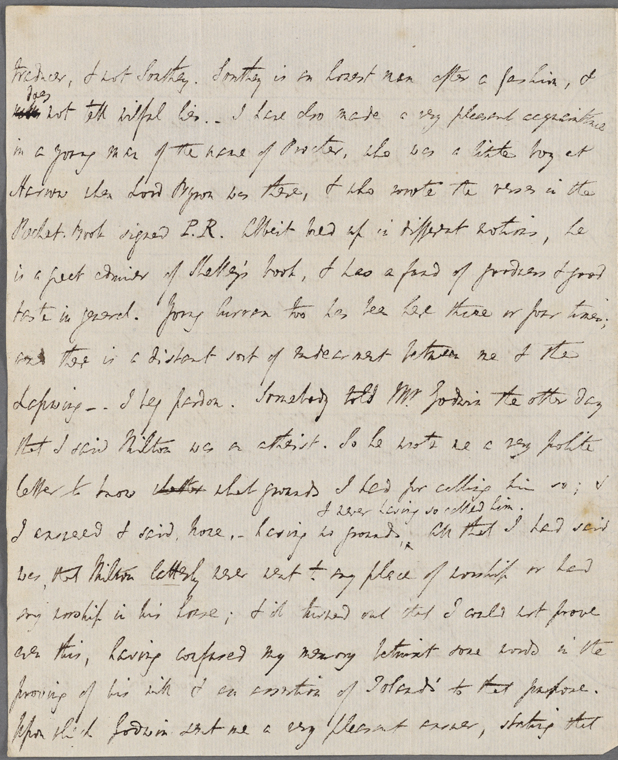 traducer, & not Southey. Southey is an honest man after a fashion, &
does
not tell wilful lies. – I have also made a very pleasant acquaintance
in a young man of the name of Procter, who was a little boy at
Harrow when Lord Byron was there, & who wrote the verses in the
Pocket-Book signed P.R. Albeit bred up in different notions, he
is a great admirer of Shelley's book, & has a fund of goodness & good
taste in general. Young Curran too has been here three or four times;
and there is a distant sort of endearment between me & the
Lapwing –. I beg pardon. Somebody told Mr. Godwin the other day
that I said Milton was an atheist. So he wrote me a very polite
letter to know whether what grounds I had for calling him so; &
& never having so called him.
I answered & said, None, – having no grounds, All that I had said
was, that Milton latterly never went to any place of worship or had
any worship in his house; & it turned out that I could not prove
even this, having confused my memory betwixt some words in the
proving of his will & an assertion of Toland's to that purpose.
Upon which Godwin sent me a very pleasant answer, stating that